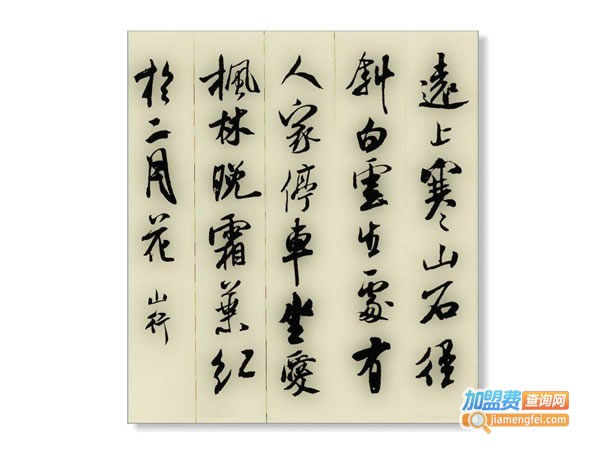 遠上寒山石徑
斜白雲生處有
人家停車坐愛
楓林晚霜葉紅
於二月花 山行
加盟费查询网
jiamengfei.com